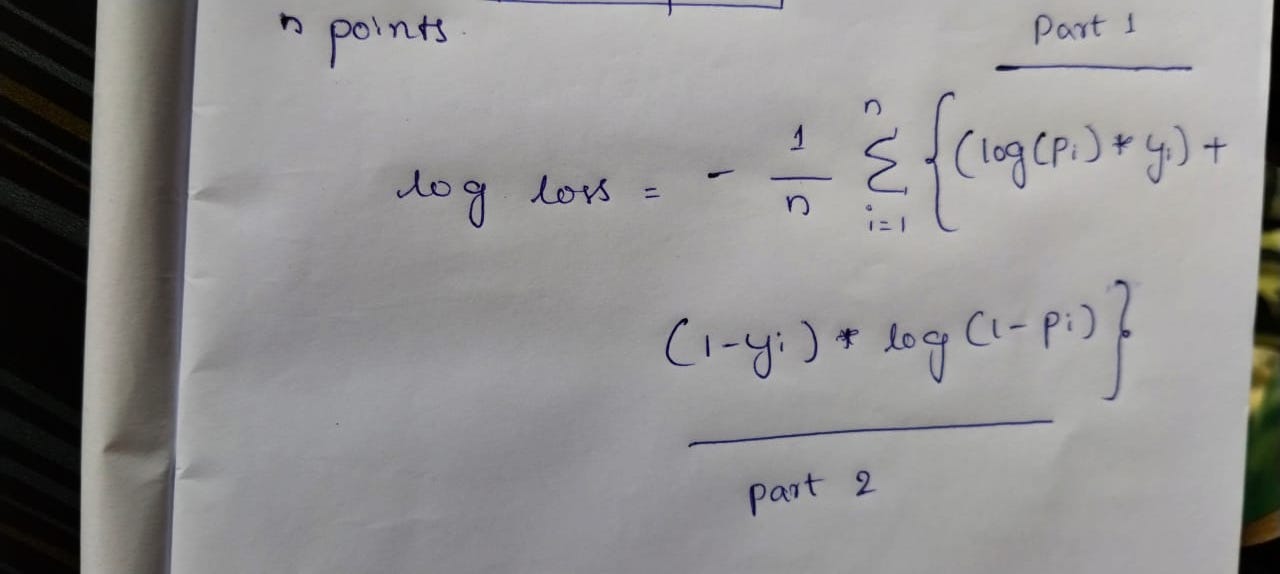 n points.
Part 1
log loss = - 1/n Σ i=1 n { (log(pi) * yi) +
(1-yi) * log (1-pi) }
part 2